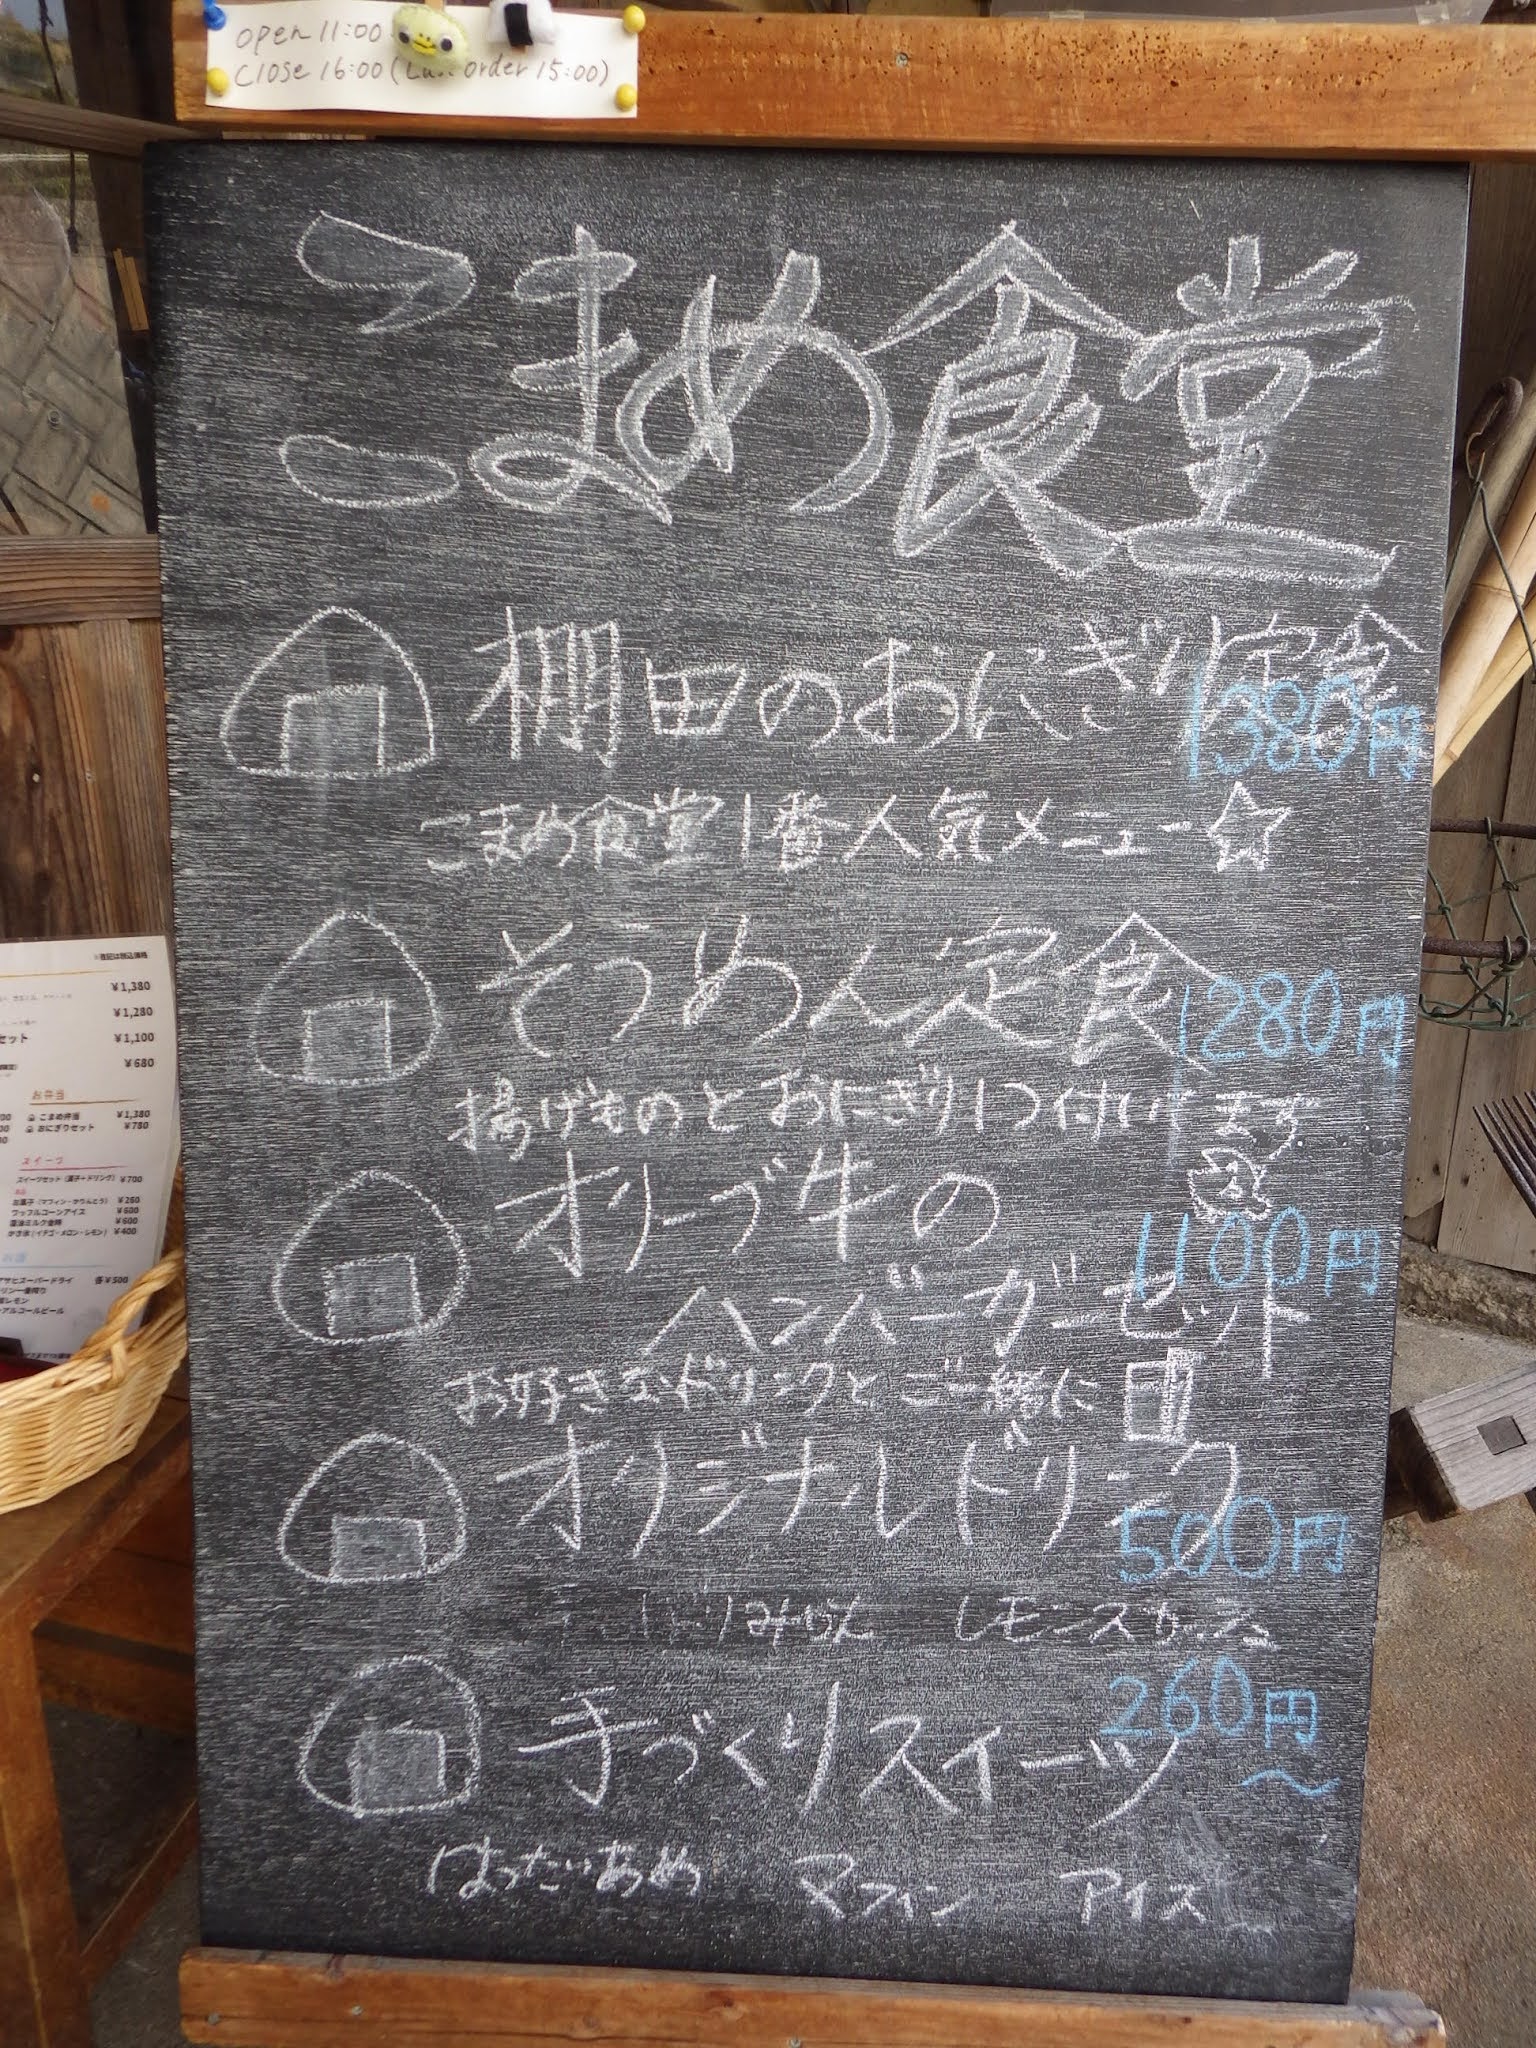 open 11:00
close 16:00 (Last order 15:00)
こまめ食堂
棚田のおにぎり定食
1380円
こまめ食堂1番人気メニュー☆
そうめん定食
1280円
揚げものとおにぎり1つ付いてます
オリーブ牛の
1100円
ハンバーガーセット
お好きなドリンクとご一緒に
オリジナルドリンク
500円
みかん レモンスカッシュ
260円~
手づくりスイーツ
はったいあめ マフィン アイス
※表記は税込価格
¥1,380
¥1,280
セット ¥1,100
¥680
お弁当
こまめ弁当 ¥1,380
おにぎりセット ¥780
スイーツ
スイーツセット(菓子+ドリンク) ¥700
お菓子(マフィン・かりんとう) ¥260
ワッフルコーンアイス ¥600
醤油ミルク金時 ¥600
かき氷(イチゴ・メロン・レモン) ¥400
アサヒスーパードライ 各¥500
リン一番搾り
レモン
アルコールビール